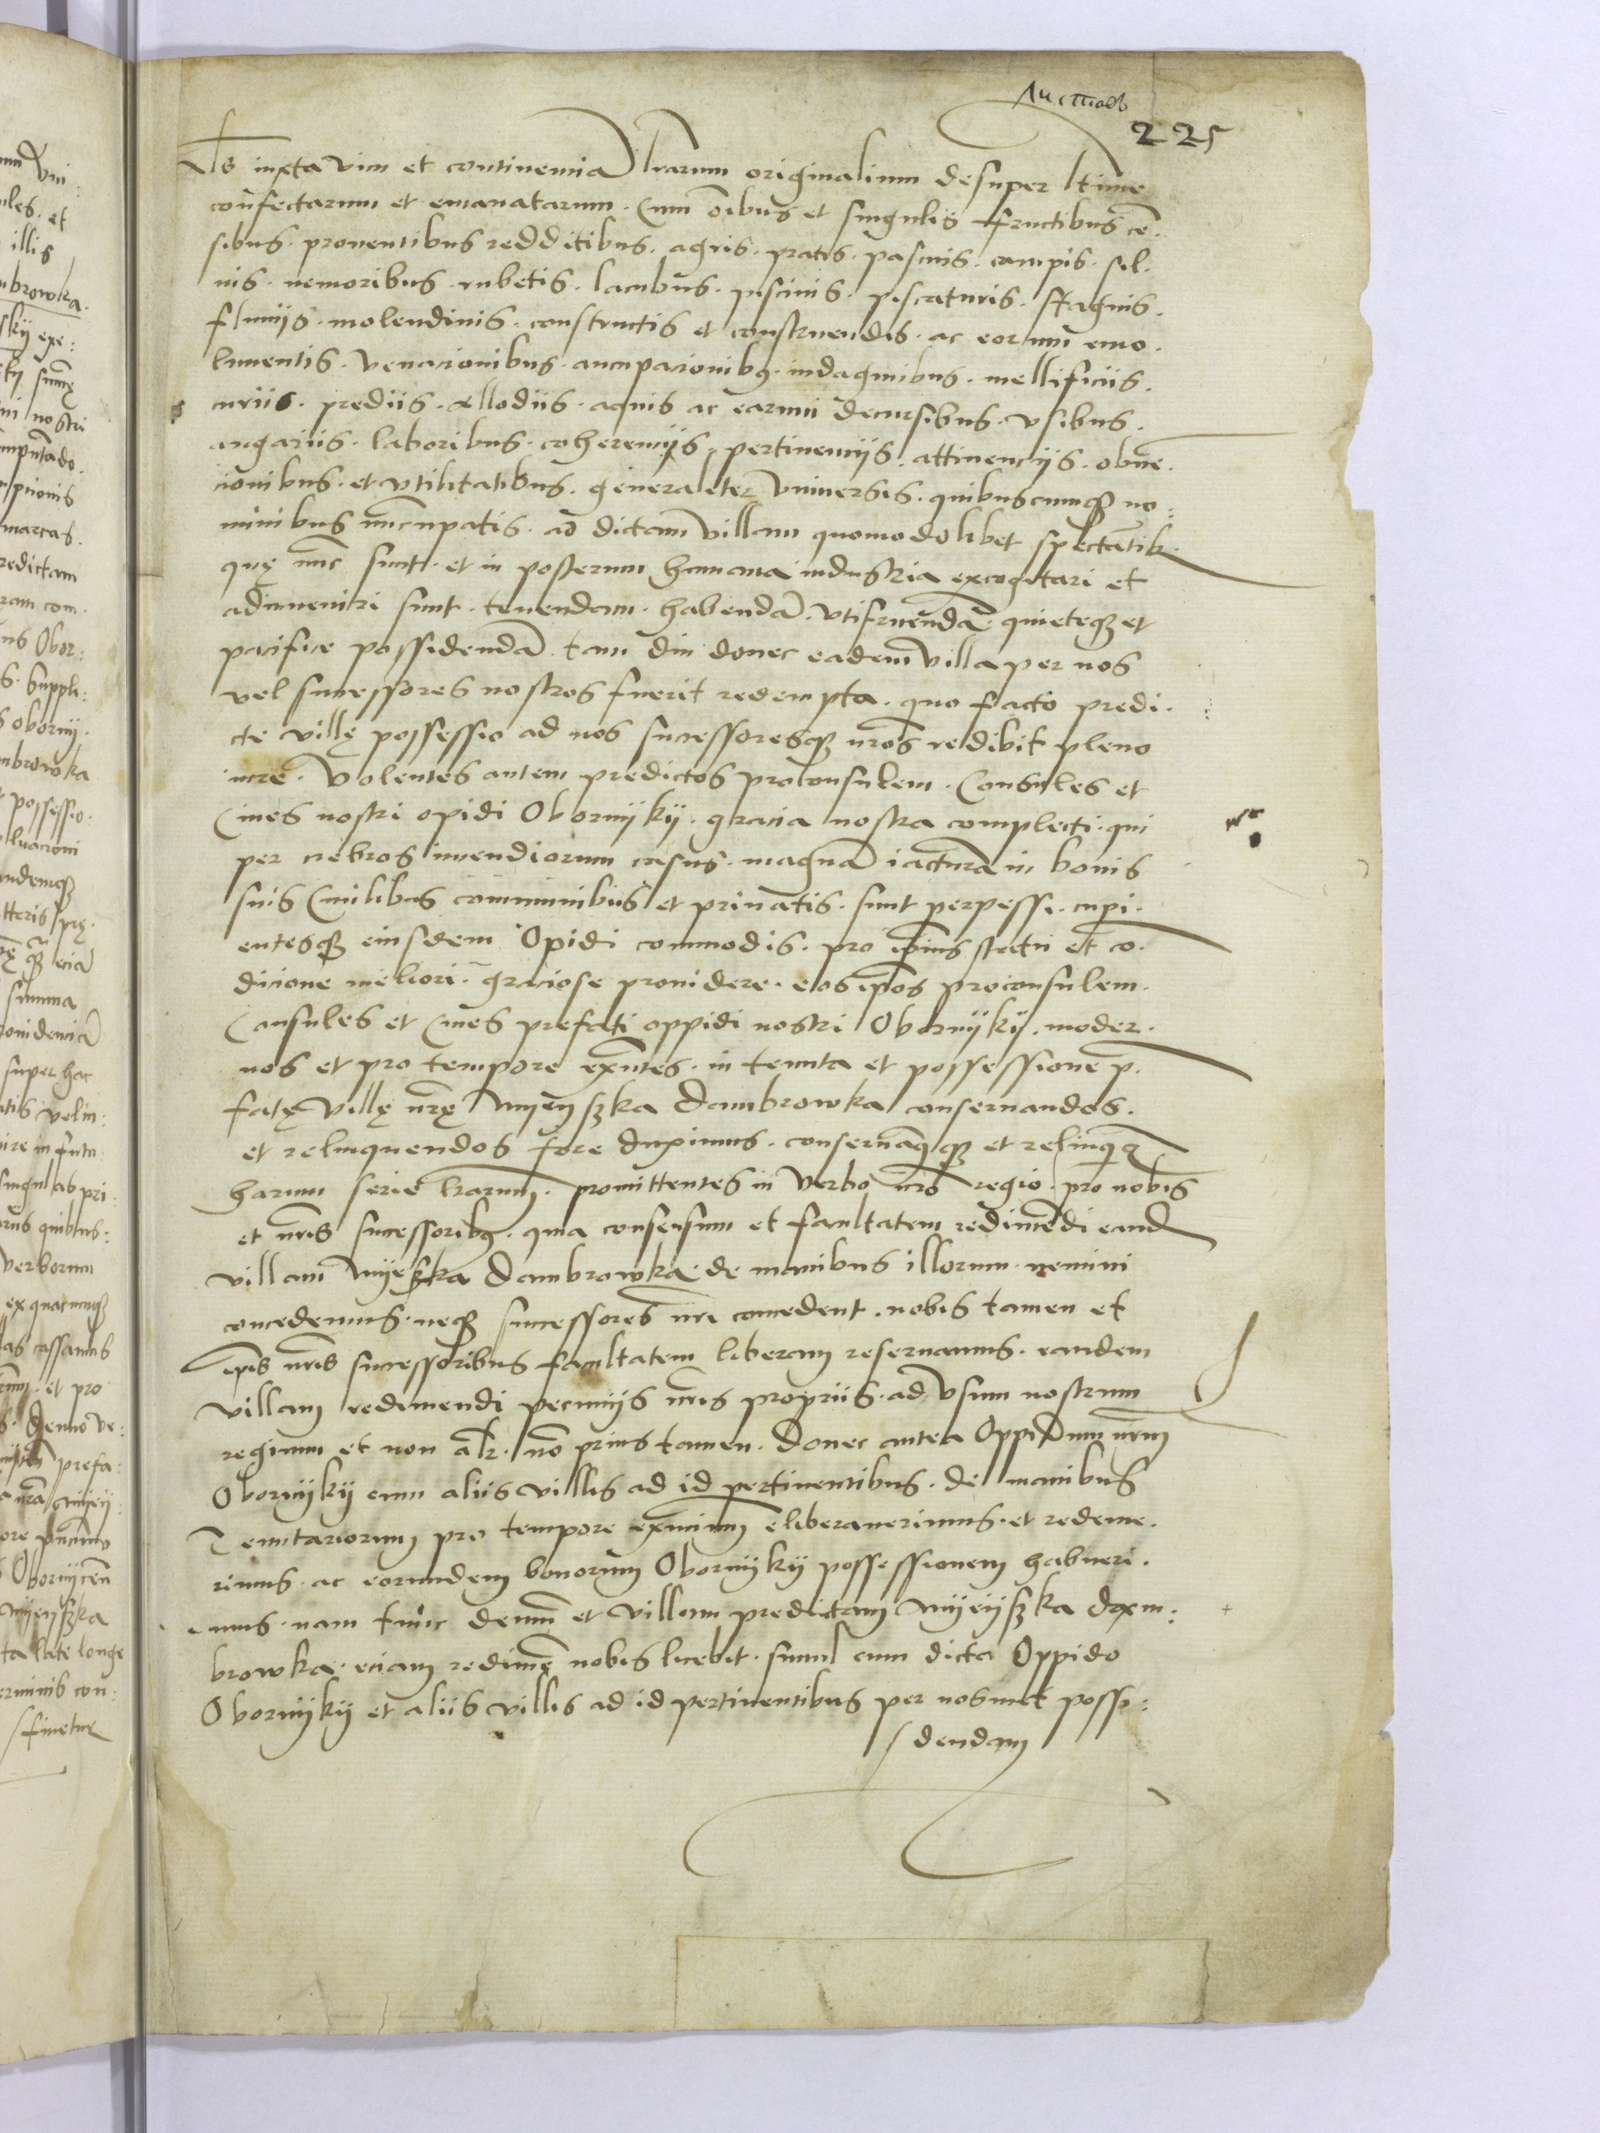 225
iuxta vim et continenciã lrarum originalium desuper
confectarum et emanatarum. Cum oĩbus et singulis fructibus cẽ.
sibus. proventibus redditibus. agris. pratis. pascuis. campis. sil.
uis. nemoribus. rubetis. lacubus. piscinis. piscaturis. stagnis.
fluuiis. molendinis. constructis et construendis. ac eorum emo.
lumentis. venacionibus. aucupacionibus. indaginibus. mellificiis.
curiis. prediis. allodiis. aquis ac earum decursibus. vsibus.
angariis. laboribus. coherencijs. pertinencijs. attinencijs. obuẽ.
cionibus. et vtilitatibus. generaliter vniuersis. quibuscumq; no:
minibus nuncupatis. ad dictam villam quomodolibet spectantib.
quę nũc sunt. et in posterum humana industria excogitari et
adinueniri sunt. tenendam. habendã. vtifruendã. quieteq; et
pacifice possidendã. tam diu donec eadem villa per nos
vel successores nostros fuerit redempta. quo facto predi.
cte villę possessio ad nos successoresq; nros redibit pleno
iure. Volentes autem predictos proconsulem. Consules et
Ciues nostri opidi Obornijkij. gracia nostra complecti. qui
per crebros incendiorum casus. magnã iacturã in bonis
suis Ciuilibus communibus et priuatis. sunt perpessi. cupi.
entesq; eiusdem Opidi commodis. pro ipius statu et cõ.
dicione meliori. graciose prouidere. eos ipos proconsulem.
Consules et Ciues prefati oppidi nostri Obornijkij. moder.
nos et pro tempore exñtes. in tenuta et possessione p.
fatę villę nrę Mijeijszka Dambrowka conseruandos.
et relinquendos fore duximus. conseruamusq; et relinqui9
harum serie lrarum. promittentes in verbo nro regio. pro nobis
et nris successoribus. quia consensum et facultatem redimẽdi eand
villam Mijeszka Dambrowka. de manibus illorum. nemini
concedemus. neq; successores nri concedent. nobis tamen et
ipis nris successoribus facultatem liberam reseruamus. eandem
villam redimendi pecunijs nris proprijs. ad vsum nostrum
regium et non alr. nõ prius tamen. donec antea Oppidum nrm
Obornijkij cum aliis villis ad id pertinentibus. de manibus
Tenutariorum pro tempore exñcium eliberauerimus. et redeme.
rimus. ac eorundem bonorum Obornijkij possessionem habueri.
mus. nam tunc demum et villam predictam Mijeijszka Dam:
browka. eciam redimẽ nobis licebit. simul cum dicto Oppido
Obornijkij et aliis villis ad id pertinentibus per nosmet possi:
dendam